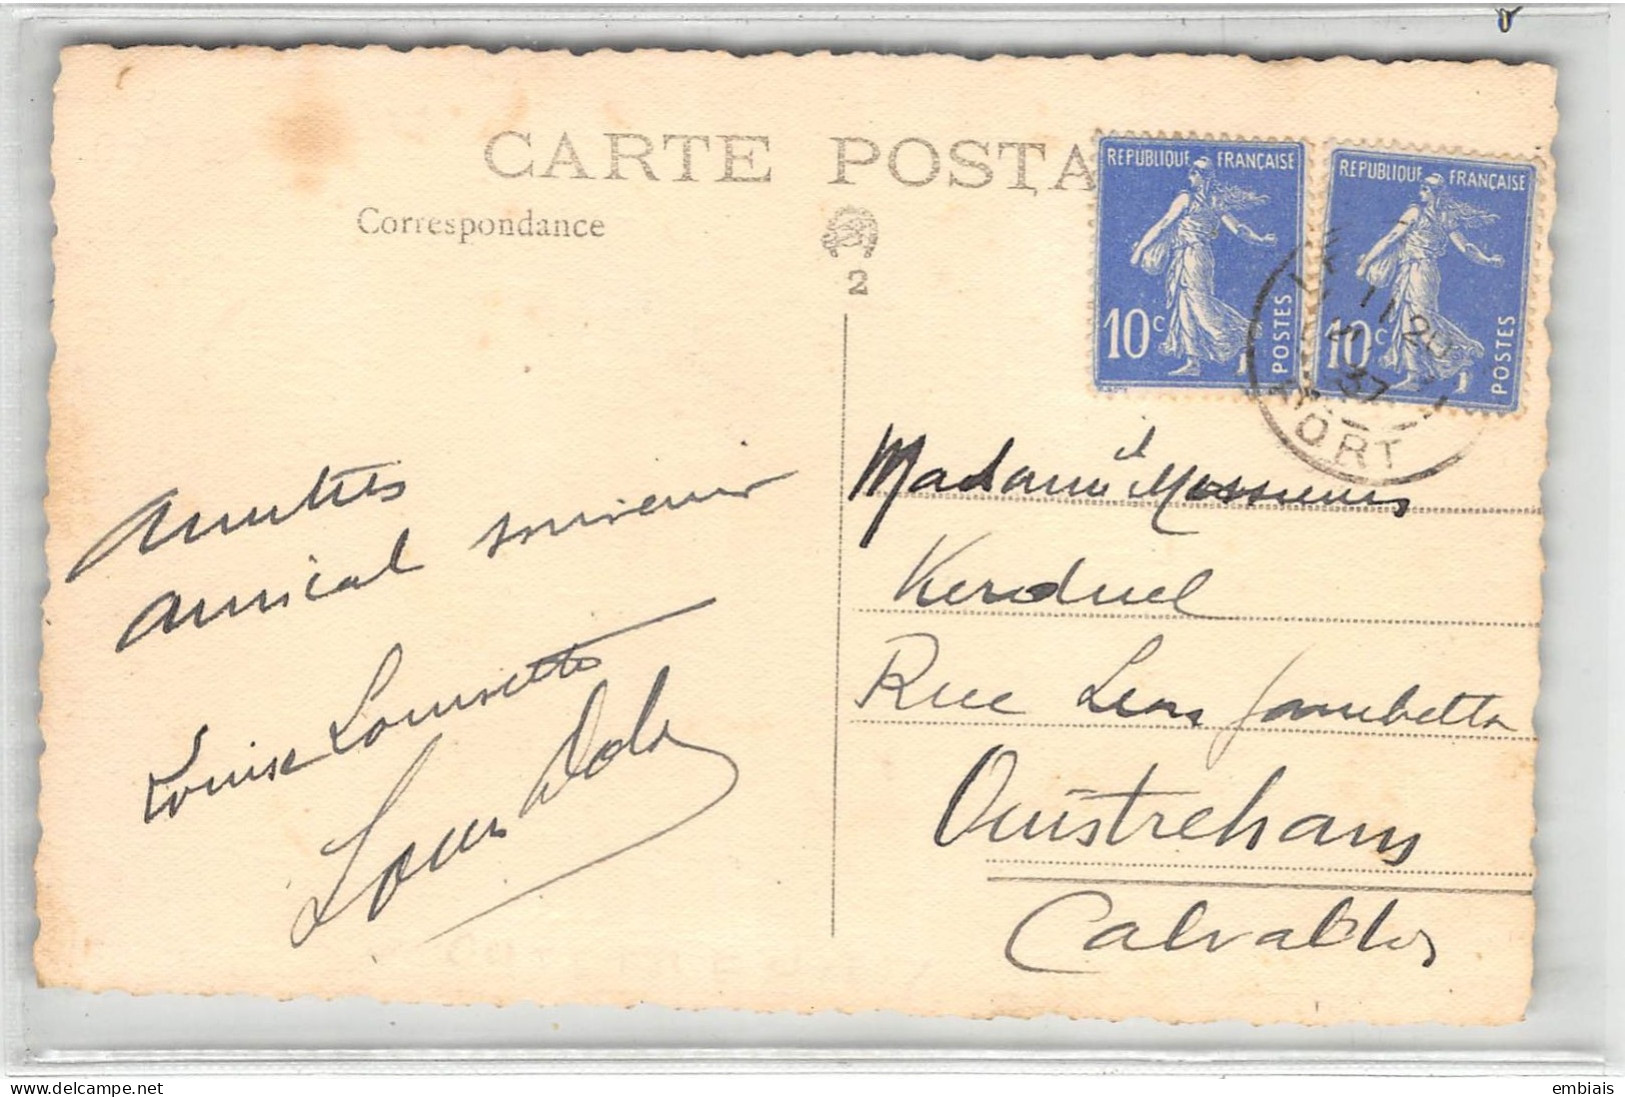 CARTE POSTA
Correspondance
2
REPUBLIQUE FRANÇAISE
10c
POSTES
REPUBLIQUE FRANÇAISE
10c
POSTES
11 20
37
amical souvenir
Louise Louisette
Louis
Madame et
Kerduel
Rue Leon Gambetta
Ouistreham
Calvados
delcampe.net
embiais